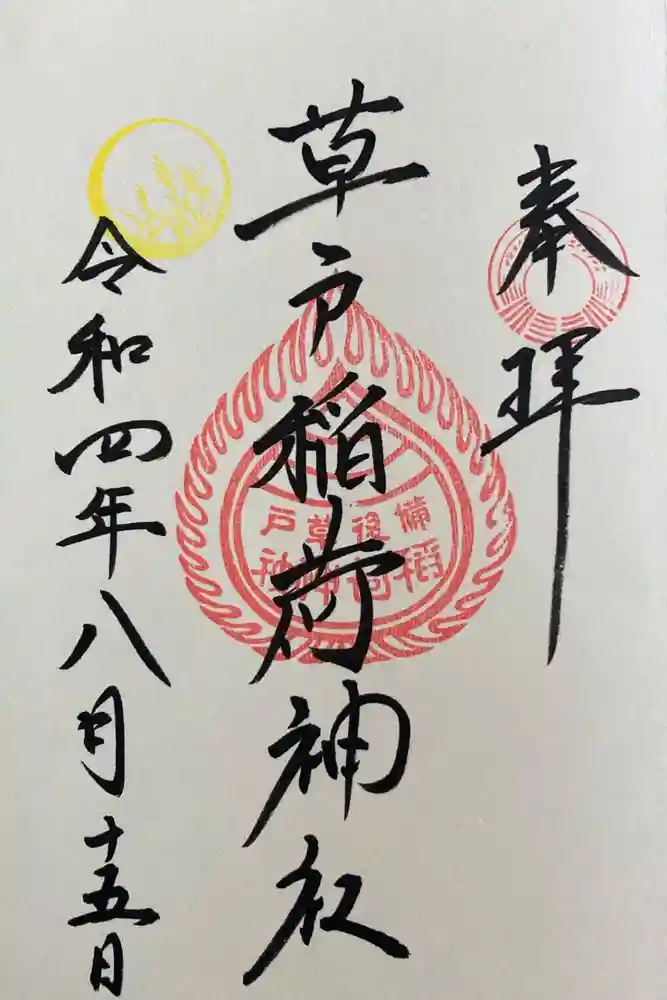 奉拝
草戸稲荷神社
備後草戸
稲荷神社
令和四年八月十五日